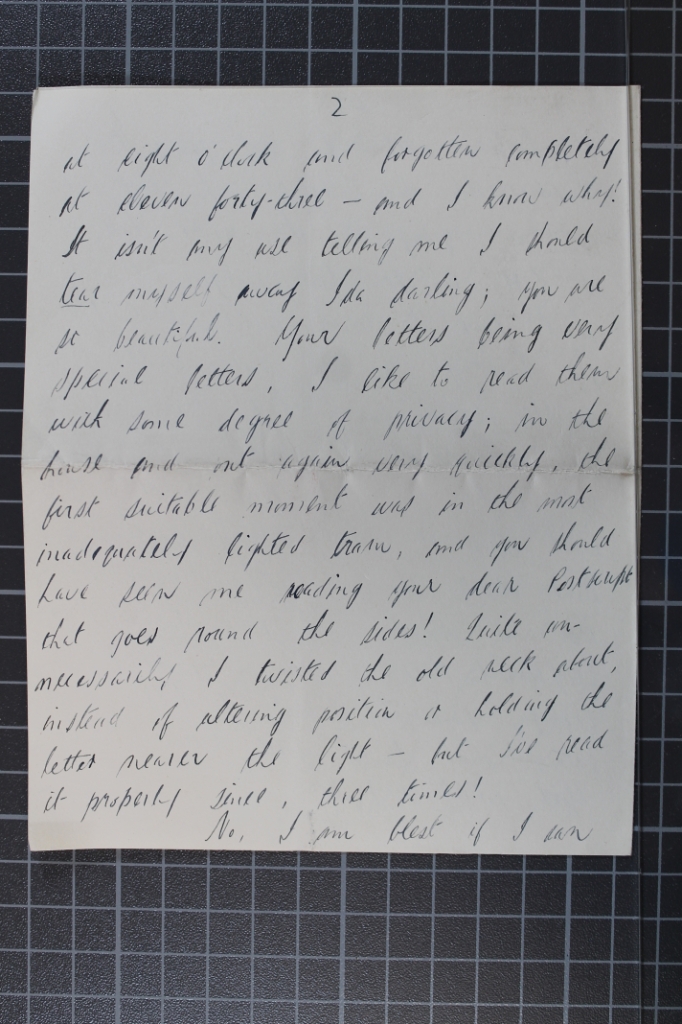 2
at eight o'clock and forgotten completely
at eleven forty-three — and I know why!
It isn't any use telling me I should
tear myself away Ida darling; you are
so beautiful. Your letters being very
special letters, I like to read them
with some degree of privacy; in the
house and out again very quickly, the
first suitable moment was in the most
inadequately lighted tram, and you should
have seen me reading your dear Postscript
that goes round the sides! Quite un-
necessarily I twisted the old neck about,
instead of altering position or holding the
letter nearer the light — but I've read
it properly since, three times!
No, I am blest if I can